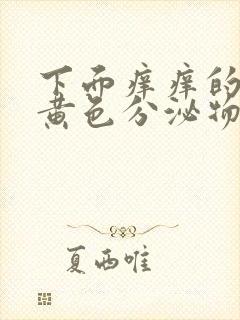 下面痒痒的
黄色分泌物
夏西唯